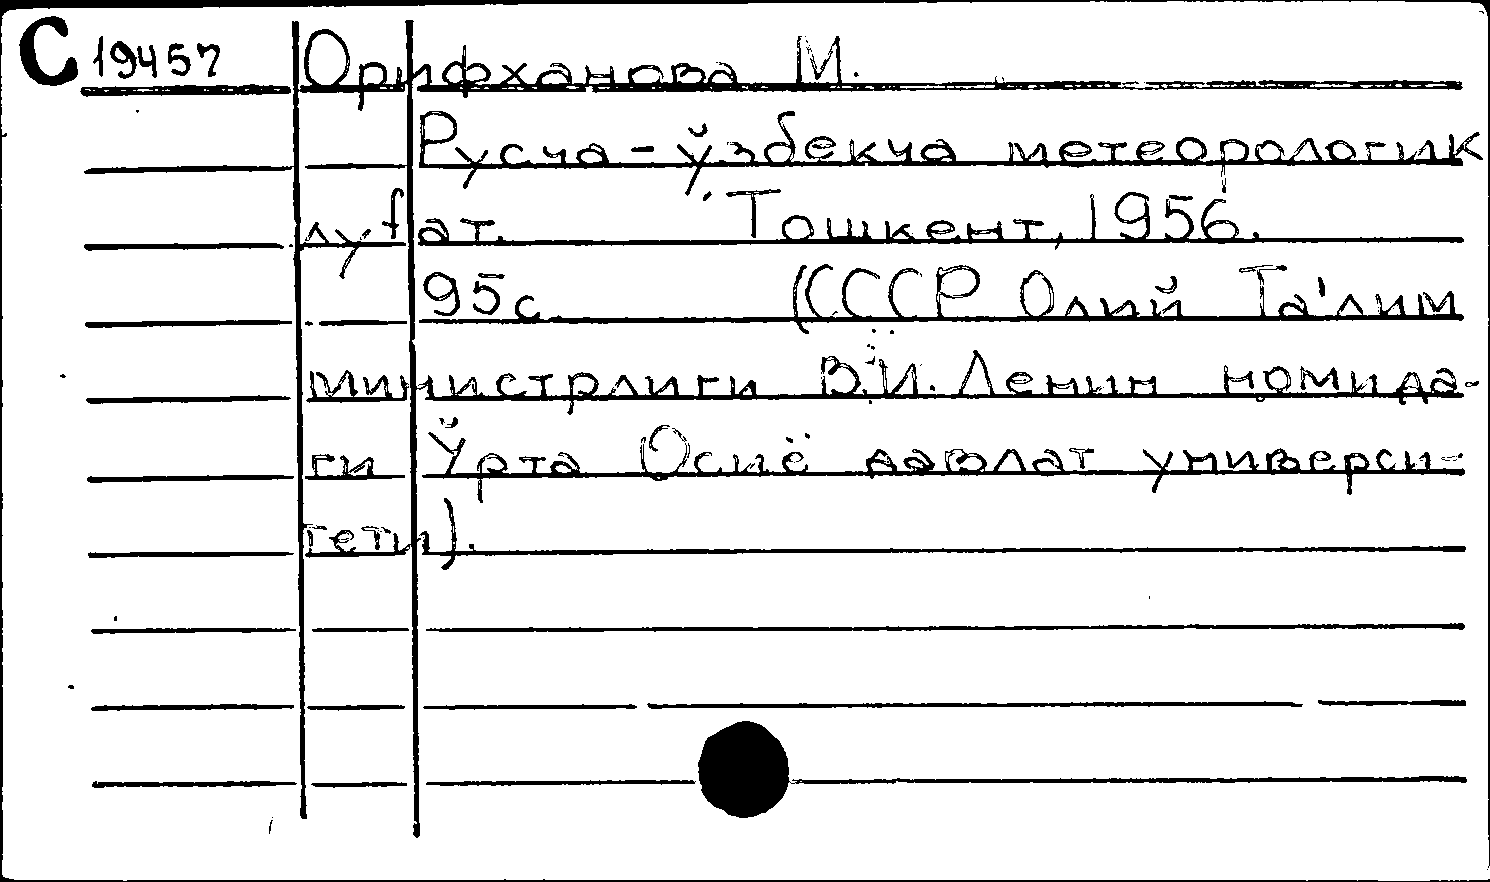 С 19457 Орифханова М.
Русча-ўзбекча метеорологик
луғат. Тошкент, 1956.
95с. (СССР Олий Та'лим
министрлиги В.И. Ленин номида-
ги Ўрта Осиё давлат универси-
тети).